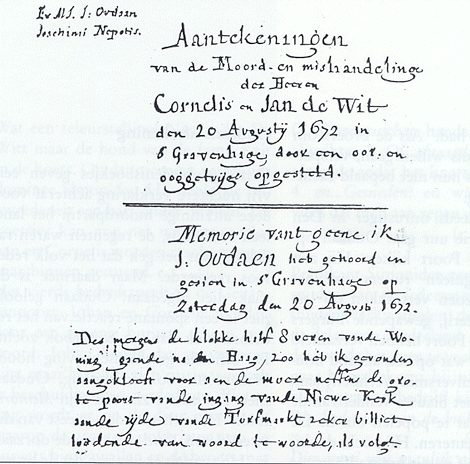 Ex M.S. J: Oudaan
Joachimi Nepotis.
Aantekeningen
van de Moord-en mishandelinge
der Heeren
Cornelis en Jan de Wit
den 20 Augustij 1672 in
s Gravenhage, door een oor- en
ooggetuijge opgesteld.
Memorie vant geene ik
J. OUDAEN heb gehoord en
gesien in s' Gravenhage op
Zaterdag den 20 Augusti 1672.
Des morgens de klokke half 8 uren vande Wo-
ning gaende na den Haag, zoo heb ik gevonden
aangeklockt voor aen de muer neffens de gro-
te poort vande ingang vande Nieuwe Kerk
aende zijde vande Turfmarkt zeker billiet
luidende van woord te woorde, als volgt